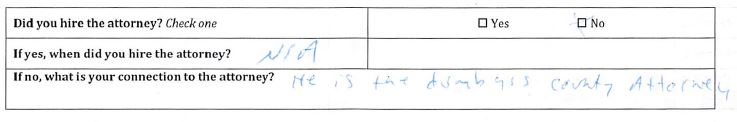 Did you hire the attorney? Check one ☐ Yes ☐ No
If yes, when did you hire the attorney? N/A
If no, what is your connection to the attorney? He is the dumbass county Attorney